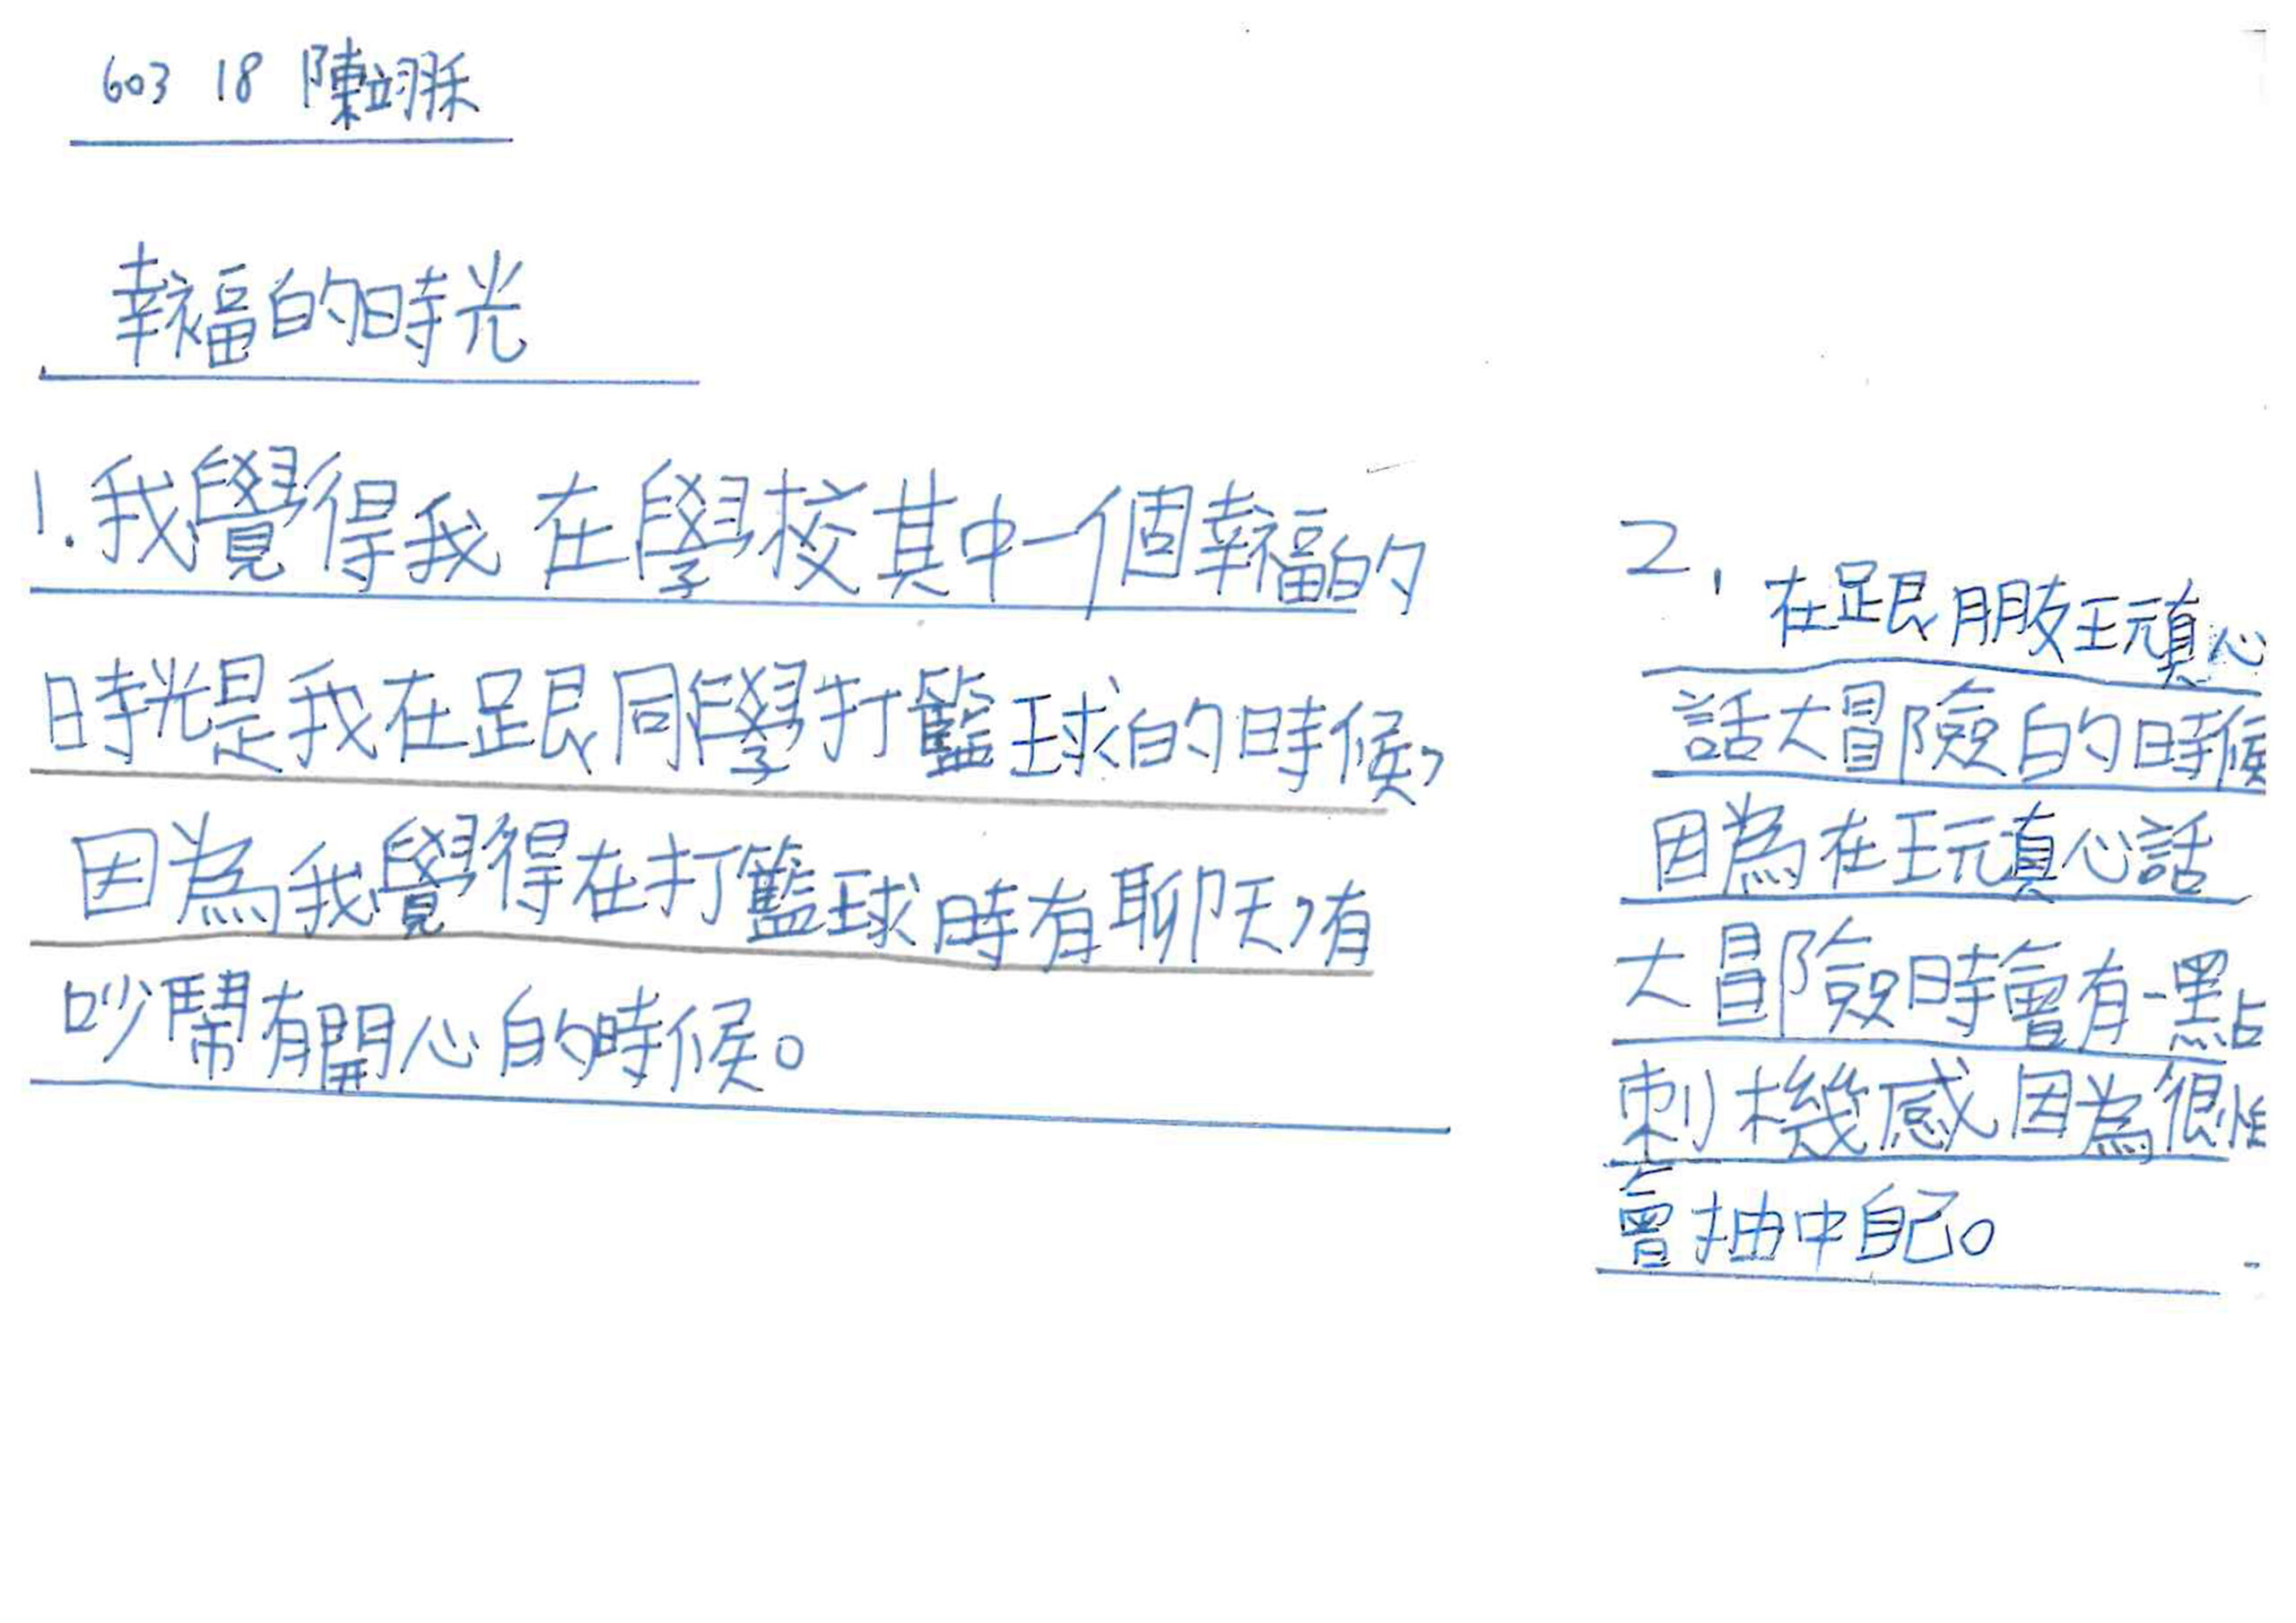 603 18 陳翊
幸福的時光
1.我覺得我在學校其中一個幸福的
時光是我在跟同學打籃球的時候,
因為我覺得在打籃球時有聊天,有
吵鬧有開心的時候。
2,在跟朋友玩真心
話大冒險的時候
因為在玩真心話
大冒險時會有一點
刺機感因為很
會抽中自己。